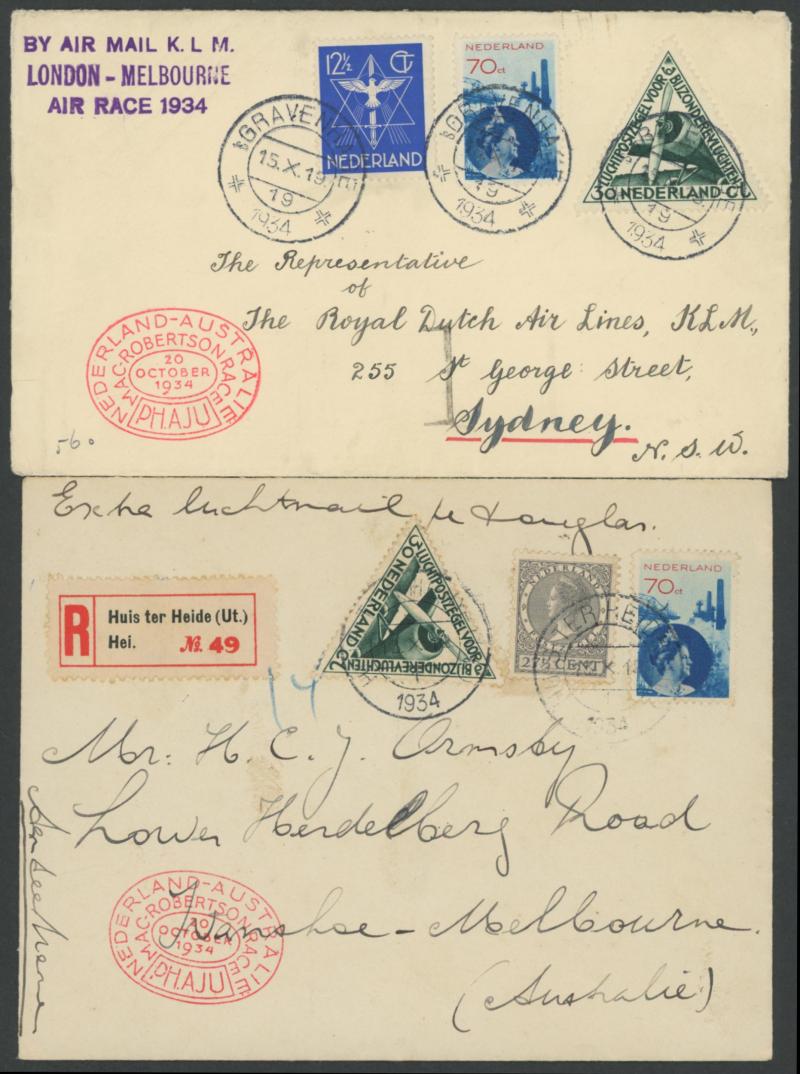 BY AIR MAIL K. L. M.
LONDON - MELBOURNE
AIR RACE 1934
12½ CT
NEDERLAND
NEDERLAND
70 ct
LUCHTPOSTZEGEL VOOR
BIJZONDERE VLUCHTEN
30 NEDERLAND CT
'sGRAVENHA
15.X.19
19
1934
'sGRAVENHA
19
1934
19
1934
The Representative
of
The Royal Dutch Air Lines, KLM.,
255 St George Street,
Sydney.
N. S. W.
NEDERLAND-AUSTRALIË
MAC-ROBERTSON RACE
20
OCTOBER
1934
PH.AJU
560
Extra luchtmail per Douglas.
R
Huis ter Heide (Ut.)
Hei. No. 49
LUCHTPOSTZEGEL VOOR
BIJZONDERE VLUCHTEN
30 NEDERLAND CT
1934
NEDERLAND
27½ CENT
1934
NEDERLAND
70 ct
14
Mr. H. C. J. Ormsby
Lower Heidelberg Road
Ivanhoe - Melbourne.
(Australië)
NEDERLAND-AUSTRALIË
MAC-ROBERTSON RACE
20
OCTOBER
1934
PH.AJU